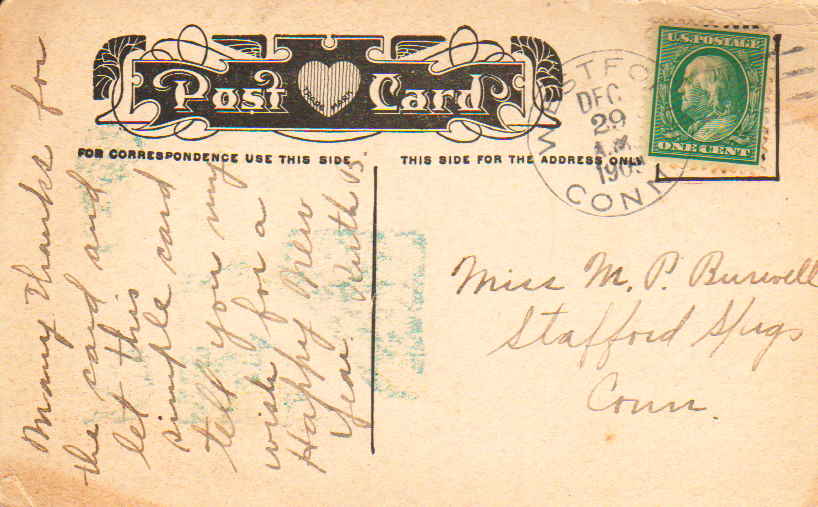 Post Card
FOR CORRESPONDENCE USE THIS SIDE
THIS SIDE FOR THE ADDRESS ONLY
U.S. POSTAGE
ONE CENT
WESTFORD
DEC
29
A.M.
190
CONN
Many thanks for
the card and
let this
simple card
tell you my
wish for a
Happy New
Year.
Miss M. P. Burwell
Stafford Spgs
Conn.